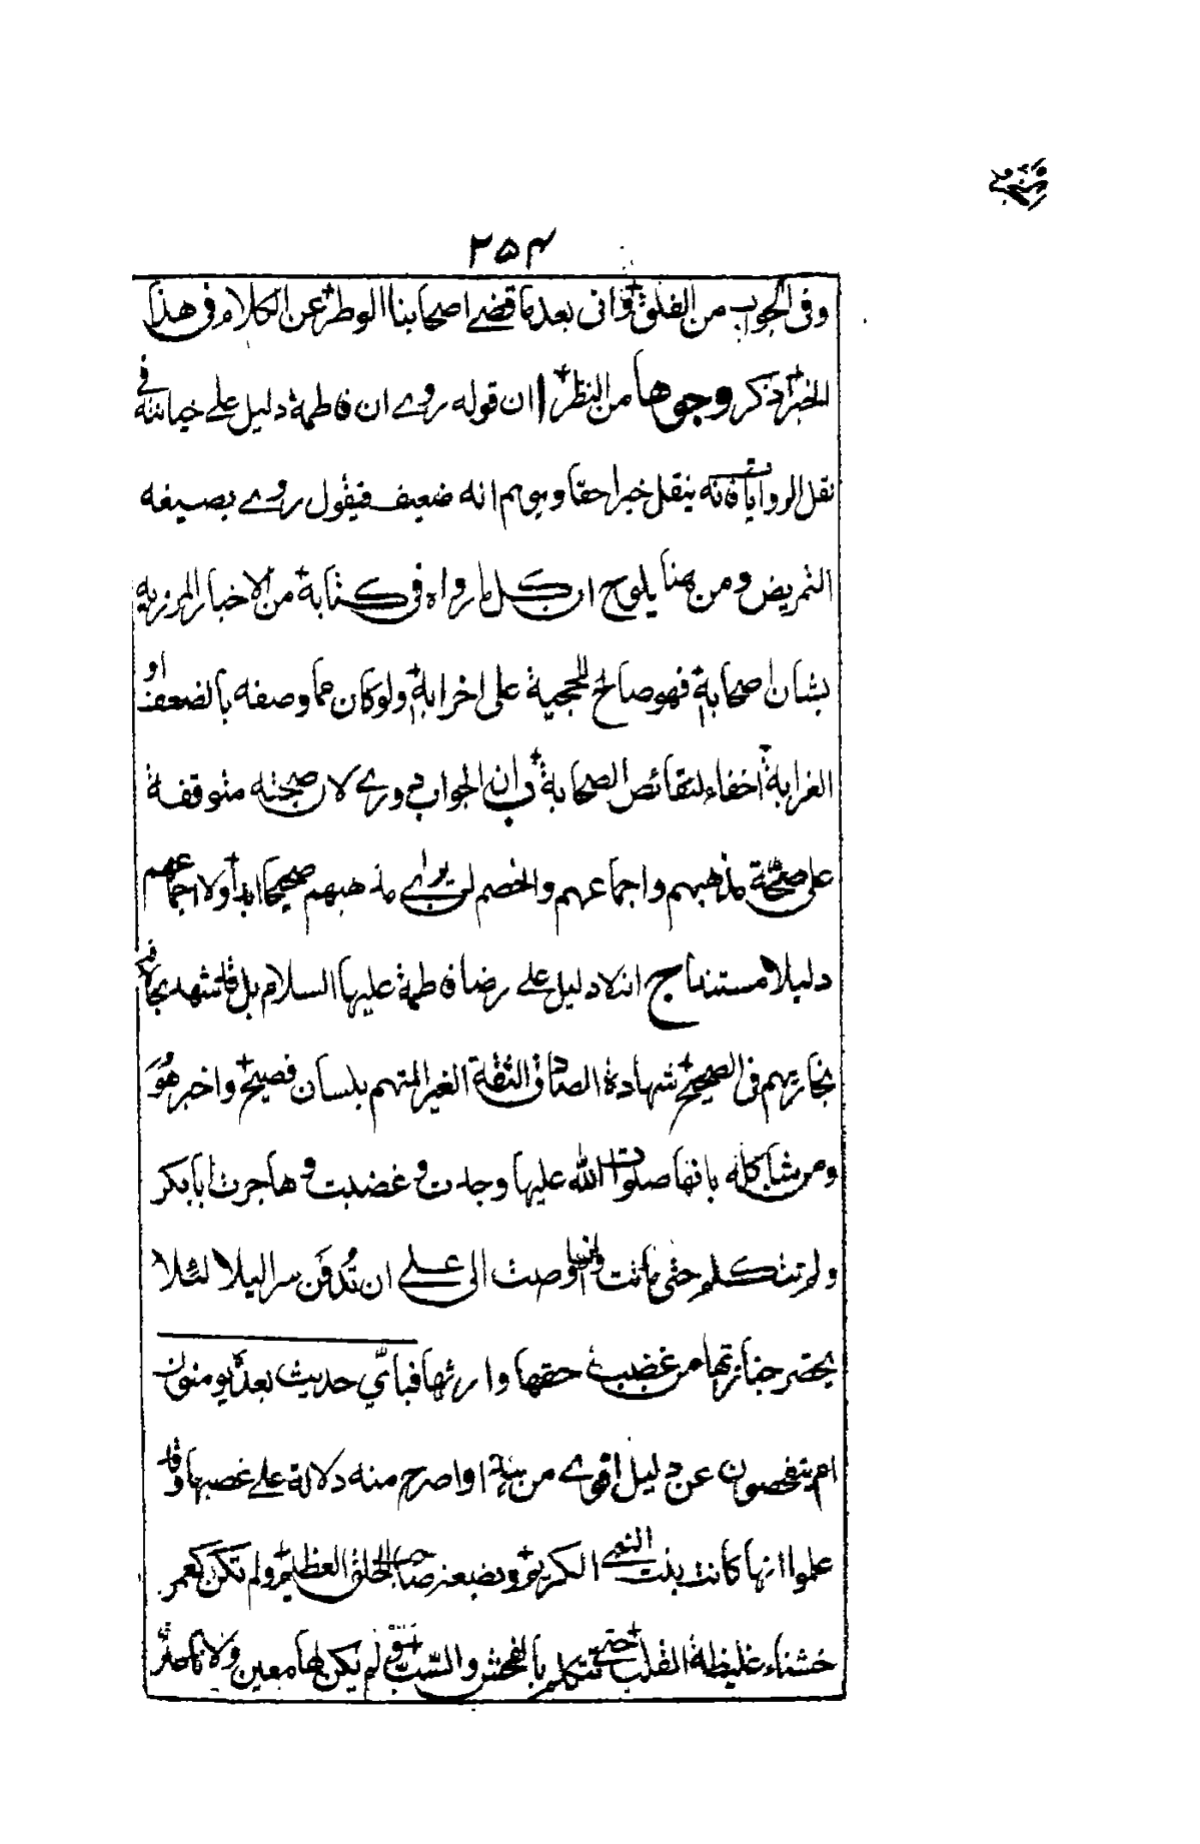 ٢٥٤
وفى الجواب من القلق وانى بعد ما قضے اصحابنا الوطر عن الكلام فى هذا
الخبر اذكر وجوها من النظر ان قوله روے ان فاطمة دليل علے خيانته فے
نقل الروايات فانه ينقل خبرا حقا ويوهم انه ضعيف فيقول روے بصيغه
التمريض ومن هنا يلوح ان كل ما رواه فى كتابة من الاخبار المزرية
بشان اصحابة فهو صالح للحجية على اخرابة ولو كان مما وصفه بالضعف او
الغرابة اخفاء لنقائص الصحابة ان الجواب دورے لان صحته متوقفة
على صحة مذهبهم واجماعهم والخصم لن يراے مذهبهم صحيحا ابدا ولا اجماعهم
دليلا مستندا ج انه لا دليل علے رضا فاطمة عليها السلام بل قد شهد
بخاريهم فى الصحيح شهادة الصادق الثقة الغير المتهم بلسان فصيح واخبر هُوَ
ومن شاكله بانها صلوات الله عليها وجدت و غضبت و هاجرت ابابكر
ولم تتكلم حتى ماتت وانها اوصت الى علے ان تُدفَن سرا ليلا لئلا
يحضر جنازتها من غصب حقها وارثها فبأيّ حديث بعده يومنون
ام يتفحصون عن دليل اقوے من بينة او اصرح منه دلالة علے غصبها وقد
علموا انها كانت بنت النبے الكريم وبضعة صاحب الخلق العظيم ولم تكن كعمر
خشناء غليظة القلب حتے تتكلم بالفحش والسّب ولم يكن لها معين ولا ناصر